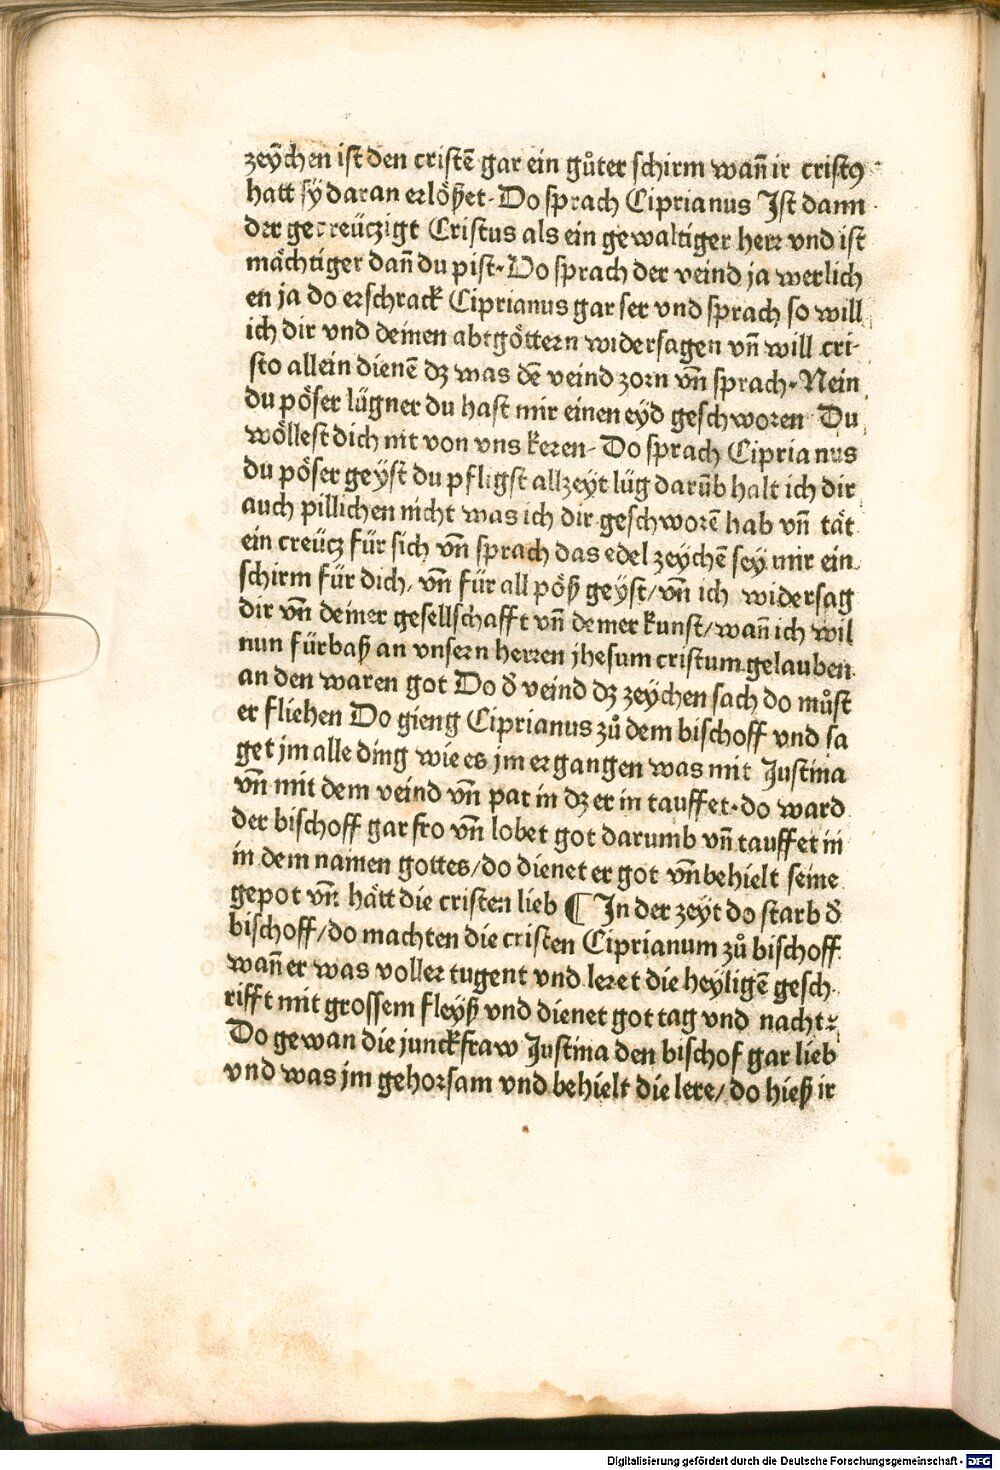 zeÿchen ist den cristē gar ein gůter schirm wañ ir cristꝰ
hatt sÿ daran erlößet. Do sprach Ciprianus Ist dann
der gecreüczigt Cristus als ein gewaltiger herr vnd ist
mächtiger dañ du pist. Do sprach der veind ja werlich
en ja do erschrack Ciprianus gar ser vnd sprach so will
ich dir vnd deinen abtgöttern widersagen vñ will cri-
sto allein dienē dz was dē veind zorn vñ sprach. Nein
du pöser lügner du hast mir einen eÿd geschworen Du
wöllest dich nit von vns keren. Do sprach Ciprianus
du pöser geÿst du pfligst allzeyt lüg darūb halt ich dir
auch pillichen nicht was ich dir geschworē hab vñ tät
ein creücz für sich vñ sprach das edel zeÿchē sey mir ein
schirm für dich, vñ für all pöß geÿst/ vñ ich widersag
dir vñ deiner gesellschafft vñ deiner kunst/ wañ ich wil
nun fürbaß an vnsern herren jhesum cristum gelauben
an den waren got Do đ veind dz zeÿchen sach do můst
er fliehen Do gieng Ciprianus zů dem bischoff vnd sa
get jm alle ding wie es jm ergangen was mit Justina
vñ mit dem veind vñ pat in dz er in tauffet. do ward
der bischoff gar fro vñ lobet got darumb vñ tauffet in
in dem namen gottes/ do dienet er got vñ behielt seine
gepot vñ hätt die cristen lieb ¶ In der zeÿt do starb đ
bischoff/ do machten die cristen Ciprianum zů bischoff
wañ er was voller tugent vnd leret die heÿligē gesch-
rifft mit grossem fleÿß vnd dienet got tag vnd nacht:
Do gewan die junckfraw Justina den bischof gar lieb
vnd was jm gehorsam vnd behielt die lere/ do hieß ir
Digitalisierung gefördert durch die Deutsche Forschungsgemeinschaft - DFG